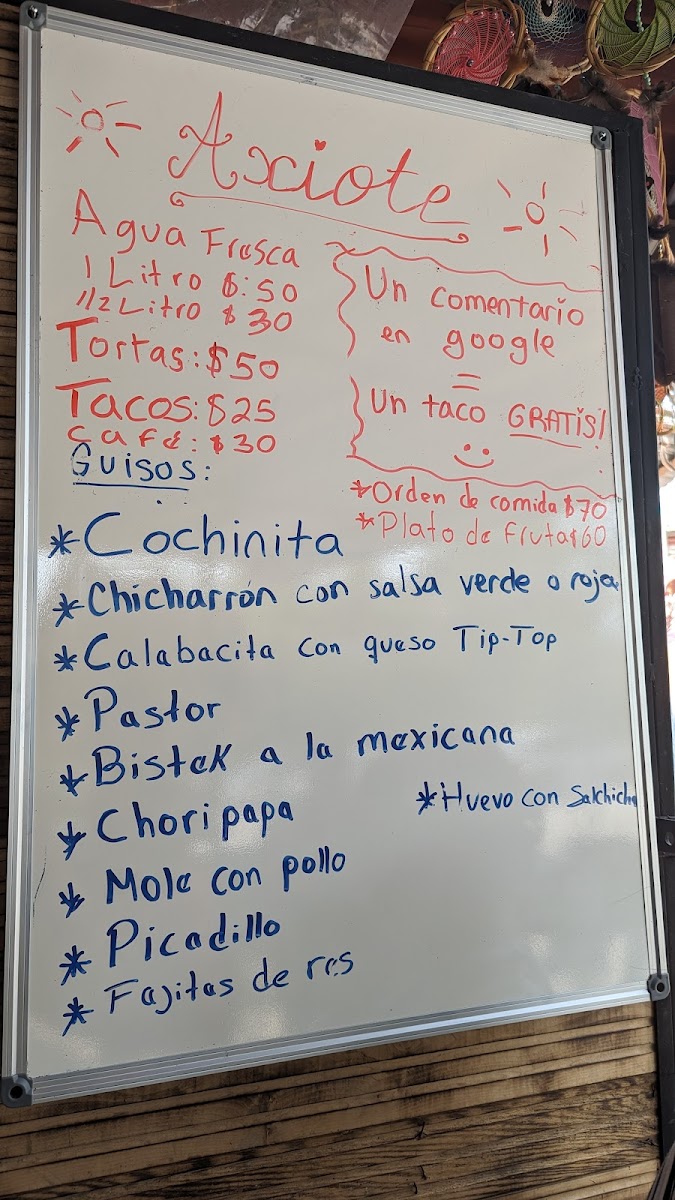 Axiote
Agua Fresca
1 Litro $:50
1/2 Litro $30
Tortas:$50
Tacos:$25
Café:$30
Un comentario
en google
=
Un taco GRATIS!
*Orden de comida $70
*Plato de Fruta$60
Guisos:
*Cochinita
*Chicharrón con salsa verde o roja
*Calabacita con queso Tip-Top
*Pastor
*Bistek a la mexicana
*Choripapa
*Huevo con Salchicha
*Mole con pollo
*Picadillo
*Fajitas de res